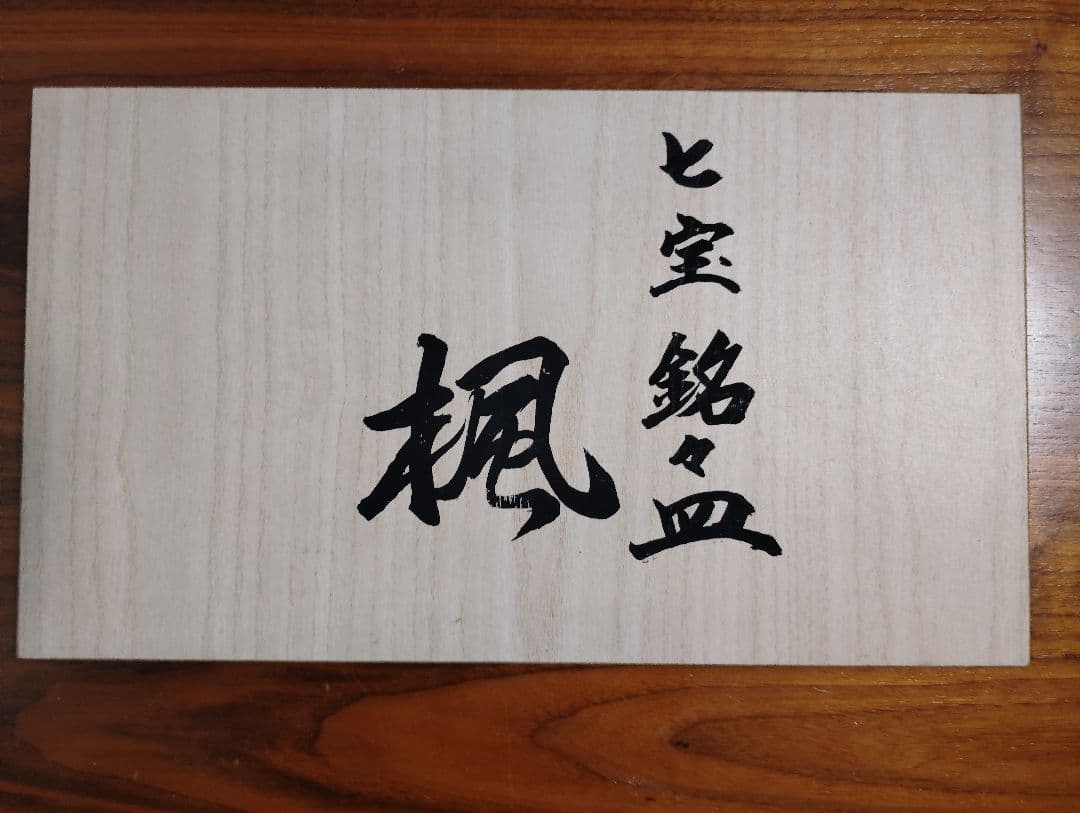 七宝銘々皿
楓